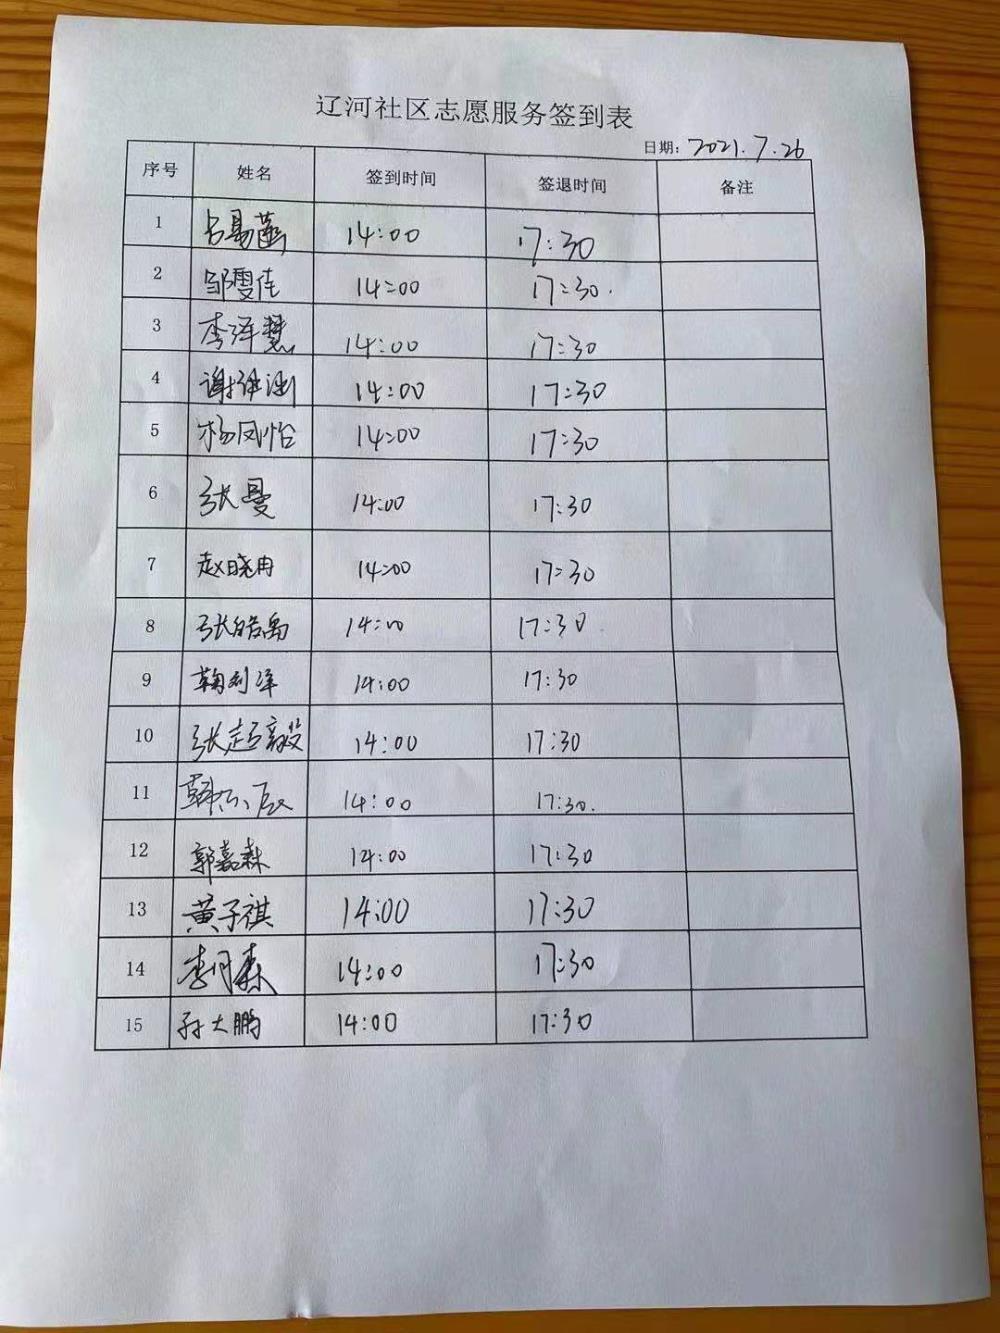 辽河社区志愿服务签到表
日期: 2021.7.26
序号 姓名 签到时间 签退时间 备注
1 14:00 17:30
2 邹雯佳 14:00 17:30.
3 李泽慧 14:00 17:30
4 谢 14:00 17:30
5 杨凤怡 14:00 17:30
6 张曼 14:00 17:30
7 赵晓冉 14:00 17:30
8 张皓禹 14:00 17:30.
9 鞠利泽 14:00 17:30
10 张超毅 14:00 17:30
11 韩 14:00 17:30.
12 郭嘉森 14:00 17:30
13 黄子祺 14:00 17:30
14 李月森 14:00 17:30
15 孙大鹏 14:00 17:30